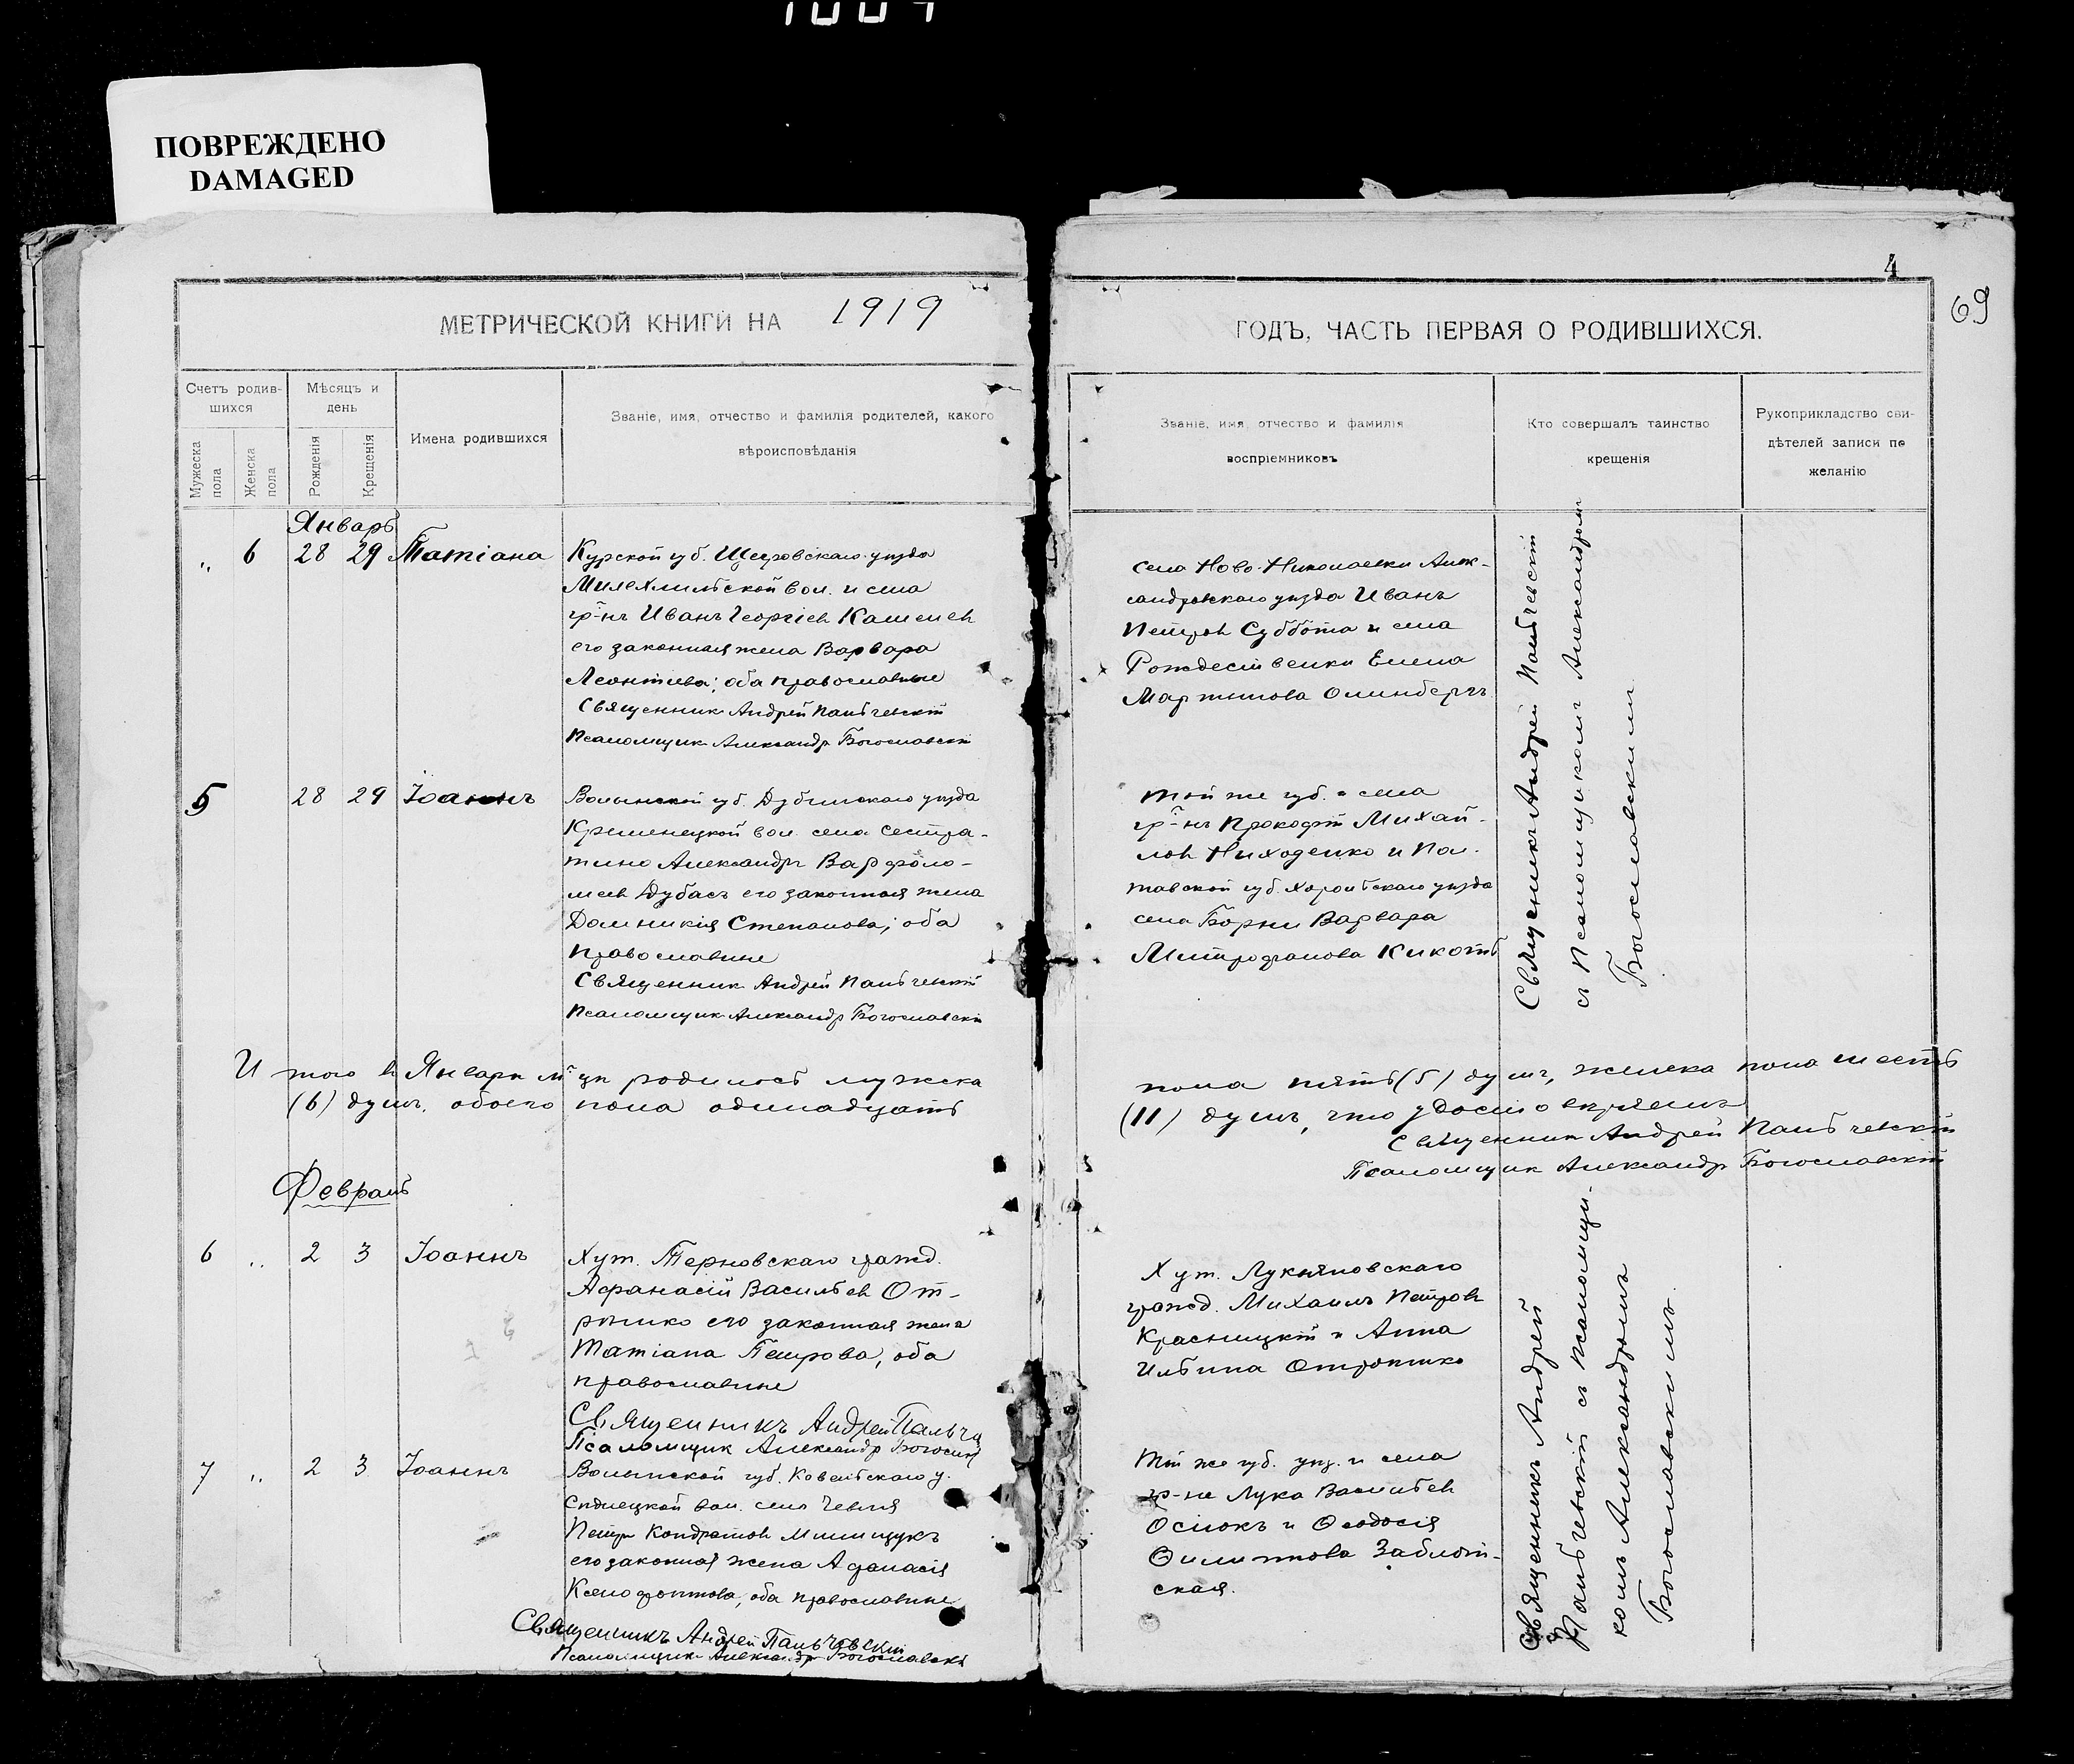 ПОВРЕЖДЕНО
DAMAGED
4
69
МЕТРИЧЕСКОЙ КНИГИ НА 1919
ГОДЪ, ЧАСТЬ ПЕРВАЯ О РОДИВШИХСЯ.
Счетъ родив-
шихся
Мужеска пола
Женска пола
Мѣсяцъ и
день
Рожденія
Крещенія
Имена родившихся
Званіе, имя, отчество и фамилія родителей, какого
вѣроисповѣданія
Званіе, имя, отчество и фамилія
воспріемниковъ
Кто совершалъ таинство
крещенія
Рукоприкладство сви-
дѣтелей записи по
желанію
Январь
„ 6 28 29 Татіана
Курской губ. уѣзда
вол. и села
гр-нъ Иванъ Георгіев
его законная жена Варвара
Леонтиева; оба православные
Священник Андрей Пальчевскій
Псаломщик Александр Богословскій
села Ново-Николаевки Алек-
сандровскаго уѣзда Иванъ
Петров Суббота и села
Рождественки Елена
Мартинова
Священникъ Андрей Пальчевскій
съ Псаломщикомъ Александромъ
Богословскимъ
5 28 29 Іоаннъ
Волынской губ. Дубенскаго уѣзда
Кременецкой вол. села Сестра-
тино Александръ Варфоло-
меев Дубасъ его законная жена
Домникія Степанова; оба
православные
Священник Андрей Пальчевскій
Псаломщик Александр Богословскій
Той же губ. и села
гр-нъ Прокофій Михай-
лов Ниходенко и Пол-
тавской губ. Хорольскаго уѣзда
села Варвара
Митрофанова Кикоть
И того в Январѣ м-цѣ родилось мужска
пола пять (5) душъ, женска пола шесть
(6) душъ, обоего пола одинадцать
(11) душъ, что удостовѣряемъ
Священник Андрей Пальчевскій
Псаломщик Александр Богословскій
Февраль
6 „ 2 3 Іоаннъ
Хут. Терновскаго гражд.
Афанасій Васильев От-
рѣшко его законная жена
Татіана Петрова, оба
православные
Священникъ Андрей Пальч
Псаломщик Александр Богослов
Хут. Лукьяновскаго
гражд. Михаилъ Петров
Красницкій и Анна
Ильина
Священникъ Андрей
Пальчевскій съ Псаломщи-
комъ Александромъ
Богословскимъ.
7 „ 2 3 Іоаннъ
Волынской губ. Ковельскаго у.
вол. села
Петръ Кондратов Мишщукъ
его законная жена Афанасія
Ксенофонтова, оба православные
Священникъ Андрей Пальчевскій
Псаломщик Александр Богословскій
Той же губ. уѣз. и села
гр-не Лука Васильев
Осіюкъ и Ѳеодосія
Ѳилиппова Заблот-
ская.